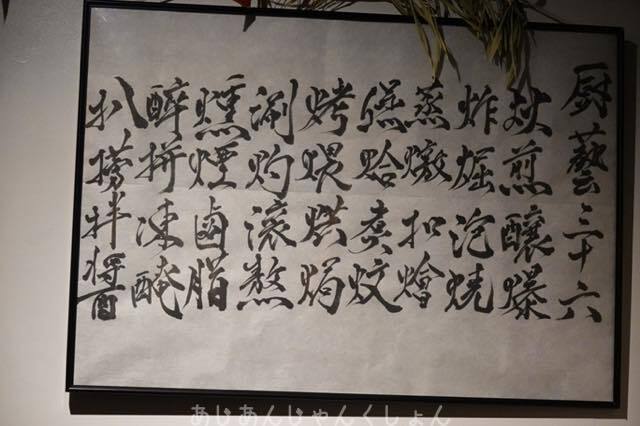 厨藝三十六
煎釀爆
炸泡燒
蒸燉扣燴
炆
烤煨烘焗
涮灼滾熬
燻煙鹵腊
醉拼凍醃
扒撈拌醬
あじあんじゃんくしょん